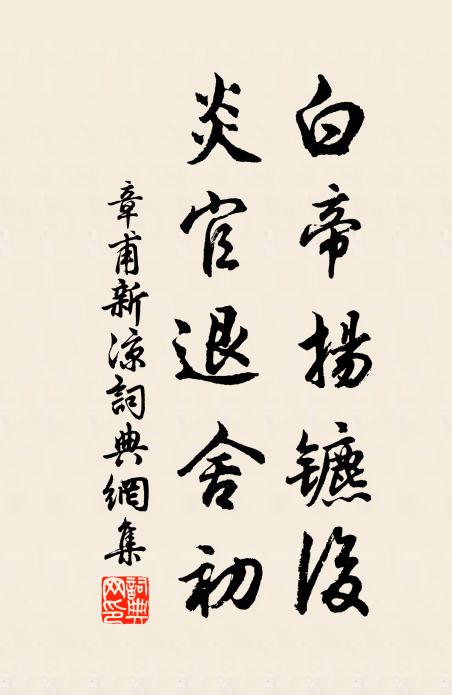 白帝揚鑣後
炎官退舍初
章甫新涼詞典網集
詞典網印